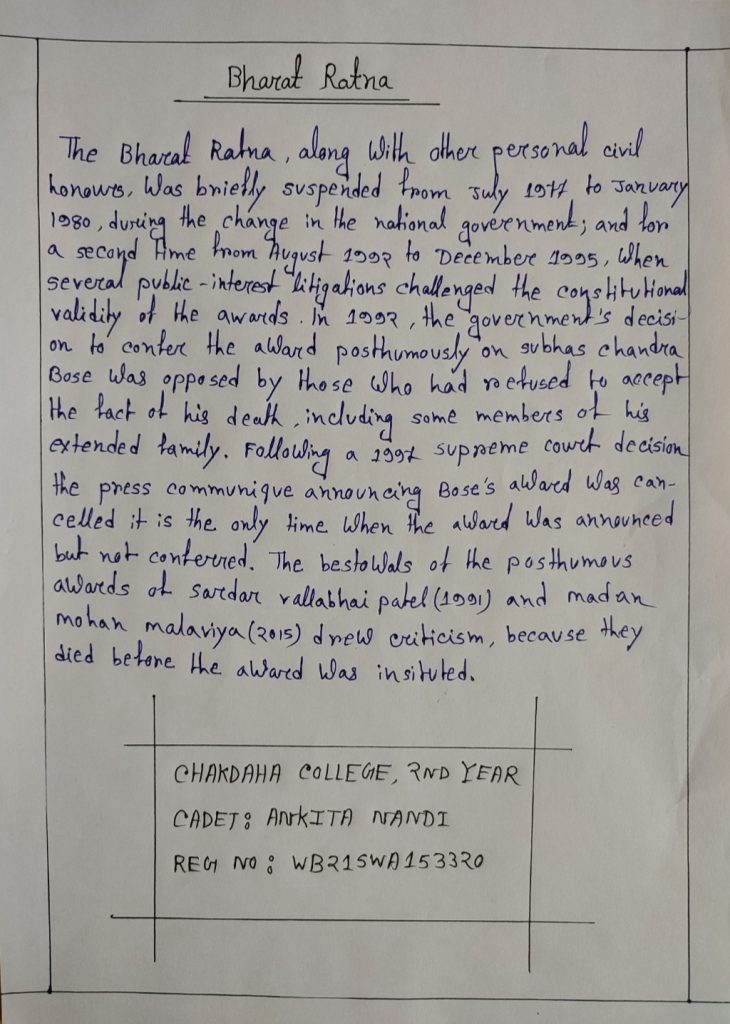 Bharat Ratna
The Bharat Ratna, along With other personal civil
honours, Was briefly suspended from July 1977 to January
1980, during the change in the national government; and for
a second time from August 1992 to December 1995, When
several public-interest litigations challenged the constitutional
validity of the awards. In 1992, the government's decisi-
on to confer the award posthumously on subhas chandra
Bose Was opposed by those Who had refused to accept
the fact of his death, including some members of his
extended family. Following a 1997 supreme court decision
the press communique announcing Bose's award Was can-
celled it is the only time When the award Was announced
but not conferred. The bestowals of the posthumous
awards of sardar vallabhai patel (1991) and madan
mohan malaviya (2015) drew criticism, because they
died before the award Was insituted.
CHAKDAHA COLLEGE, 2ND YEAR
CADET: ANKITA NANDI
REG NO: WB21SWA153320